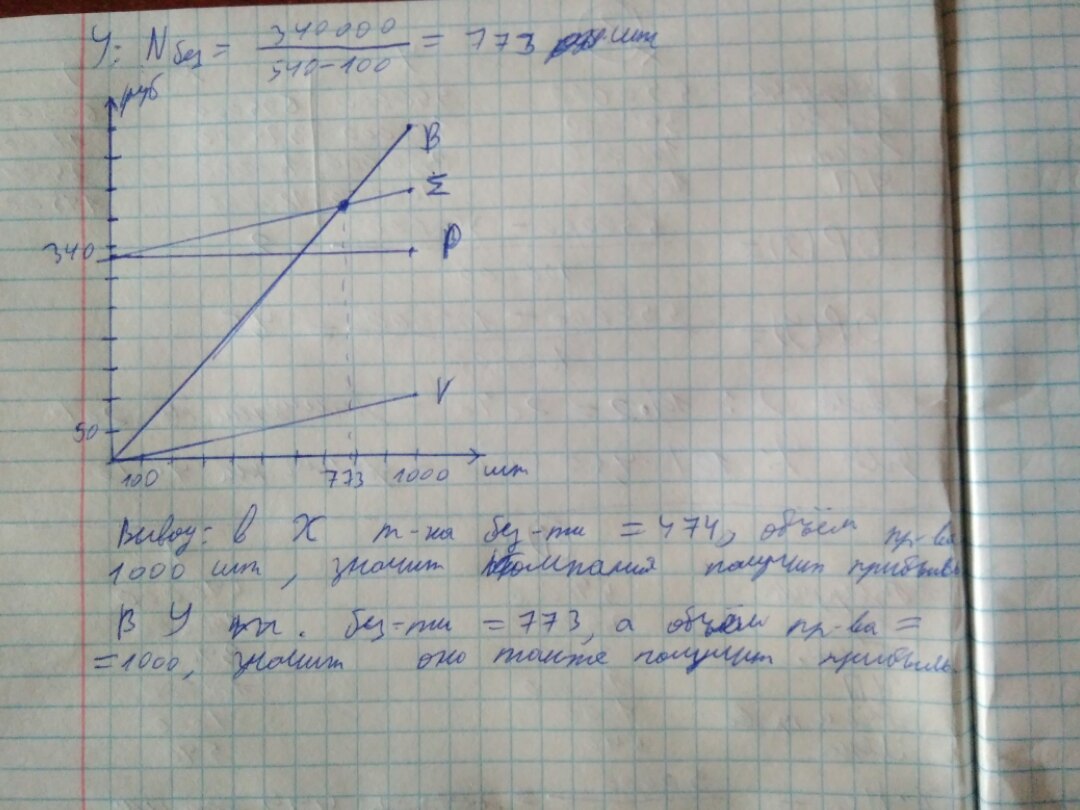 У: Nбез = 340000 / 540-100 = 773 шт
руб
B
Σ
340
P
V
50
100 773 1000 шт
Вывод: в X т-ка без-ти = 474, объём пр-ва
1000 шт, значит компания получит прибыль
В У т. без-ти = 773, а объём пр-ва =
=1000, значит оно также получит прибыль